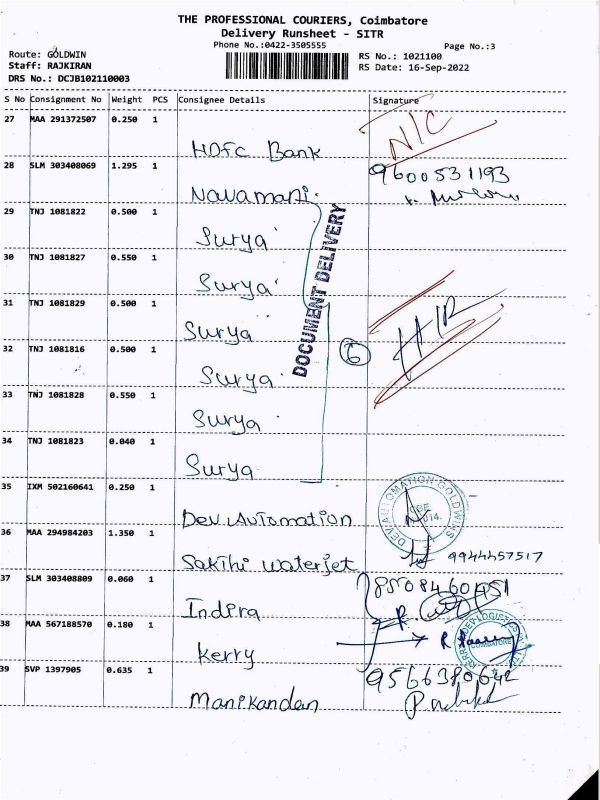 THE PROFESSIONAL COURIERS, Coimbatore
Delivery Runsheet - SITR
Phone No.:0422-3505555
Page No.:3
Route: GOLDWIN
RS No.: 1021100
Staff: RAJKIRAN
RS Date: 16-Sep-2022
DRS No.: DCJB102110003
S No Consignment No Weight PCS Consignee Details Signature
27 MAA 291372507 0.250 1
HDFC Bank
N/C
28 SLM 303408069 1.295 1
9600531193
Navamani
29 TNJ 1081822 0.500 1
Surya
30 TNJ 1081827 0.550 1
Surya
31 TNJ 1081829 0.500 1
Surya
DOCUMENT DELIVERY
6
32 TNJ 1081816 0.500 1
Surya
33 TNJ 1081828 0.550 1
Surya
34 TNJ 1081823 0.040 1
Surya
35 IXM 502160641 0.250 1
Dev.Automation
DEV AUTOMATION GOLDWINS
36 MAA 294984203 1.350 1
Sakthi Waterjet
9944457517
37 SLM 303408809 0.060 1
Indira
38 MAA 567188570 0.180 1
Kerry
COIMBATORE
39 SVP 1397905 0.635 1
9566380642
Manikandan